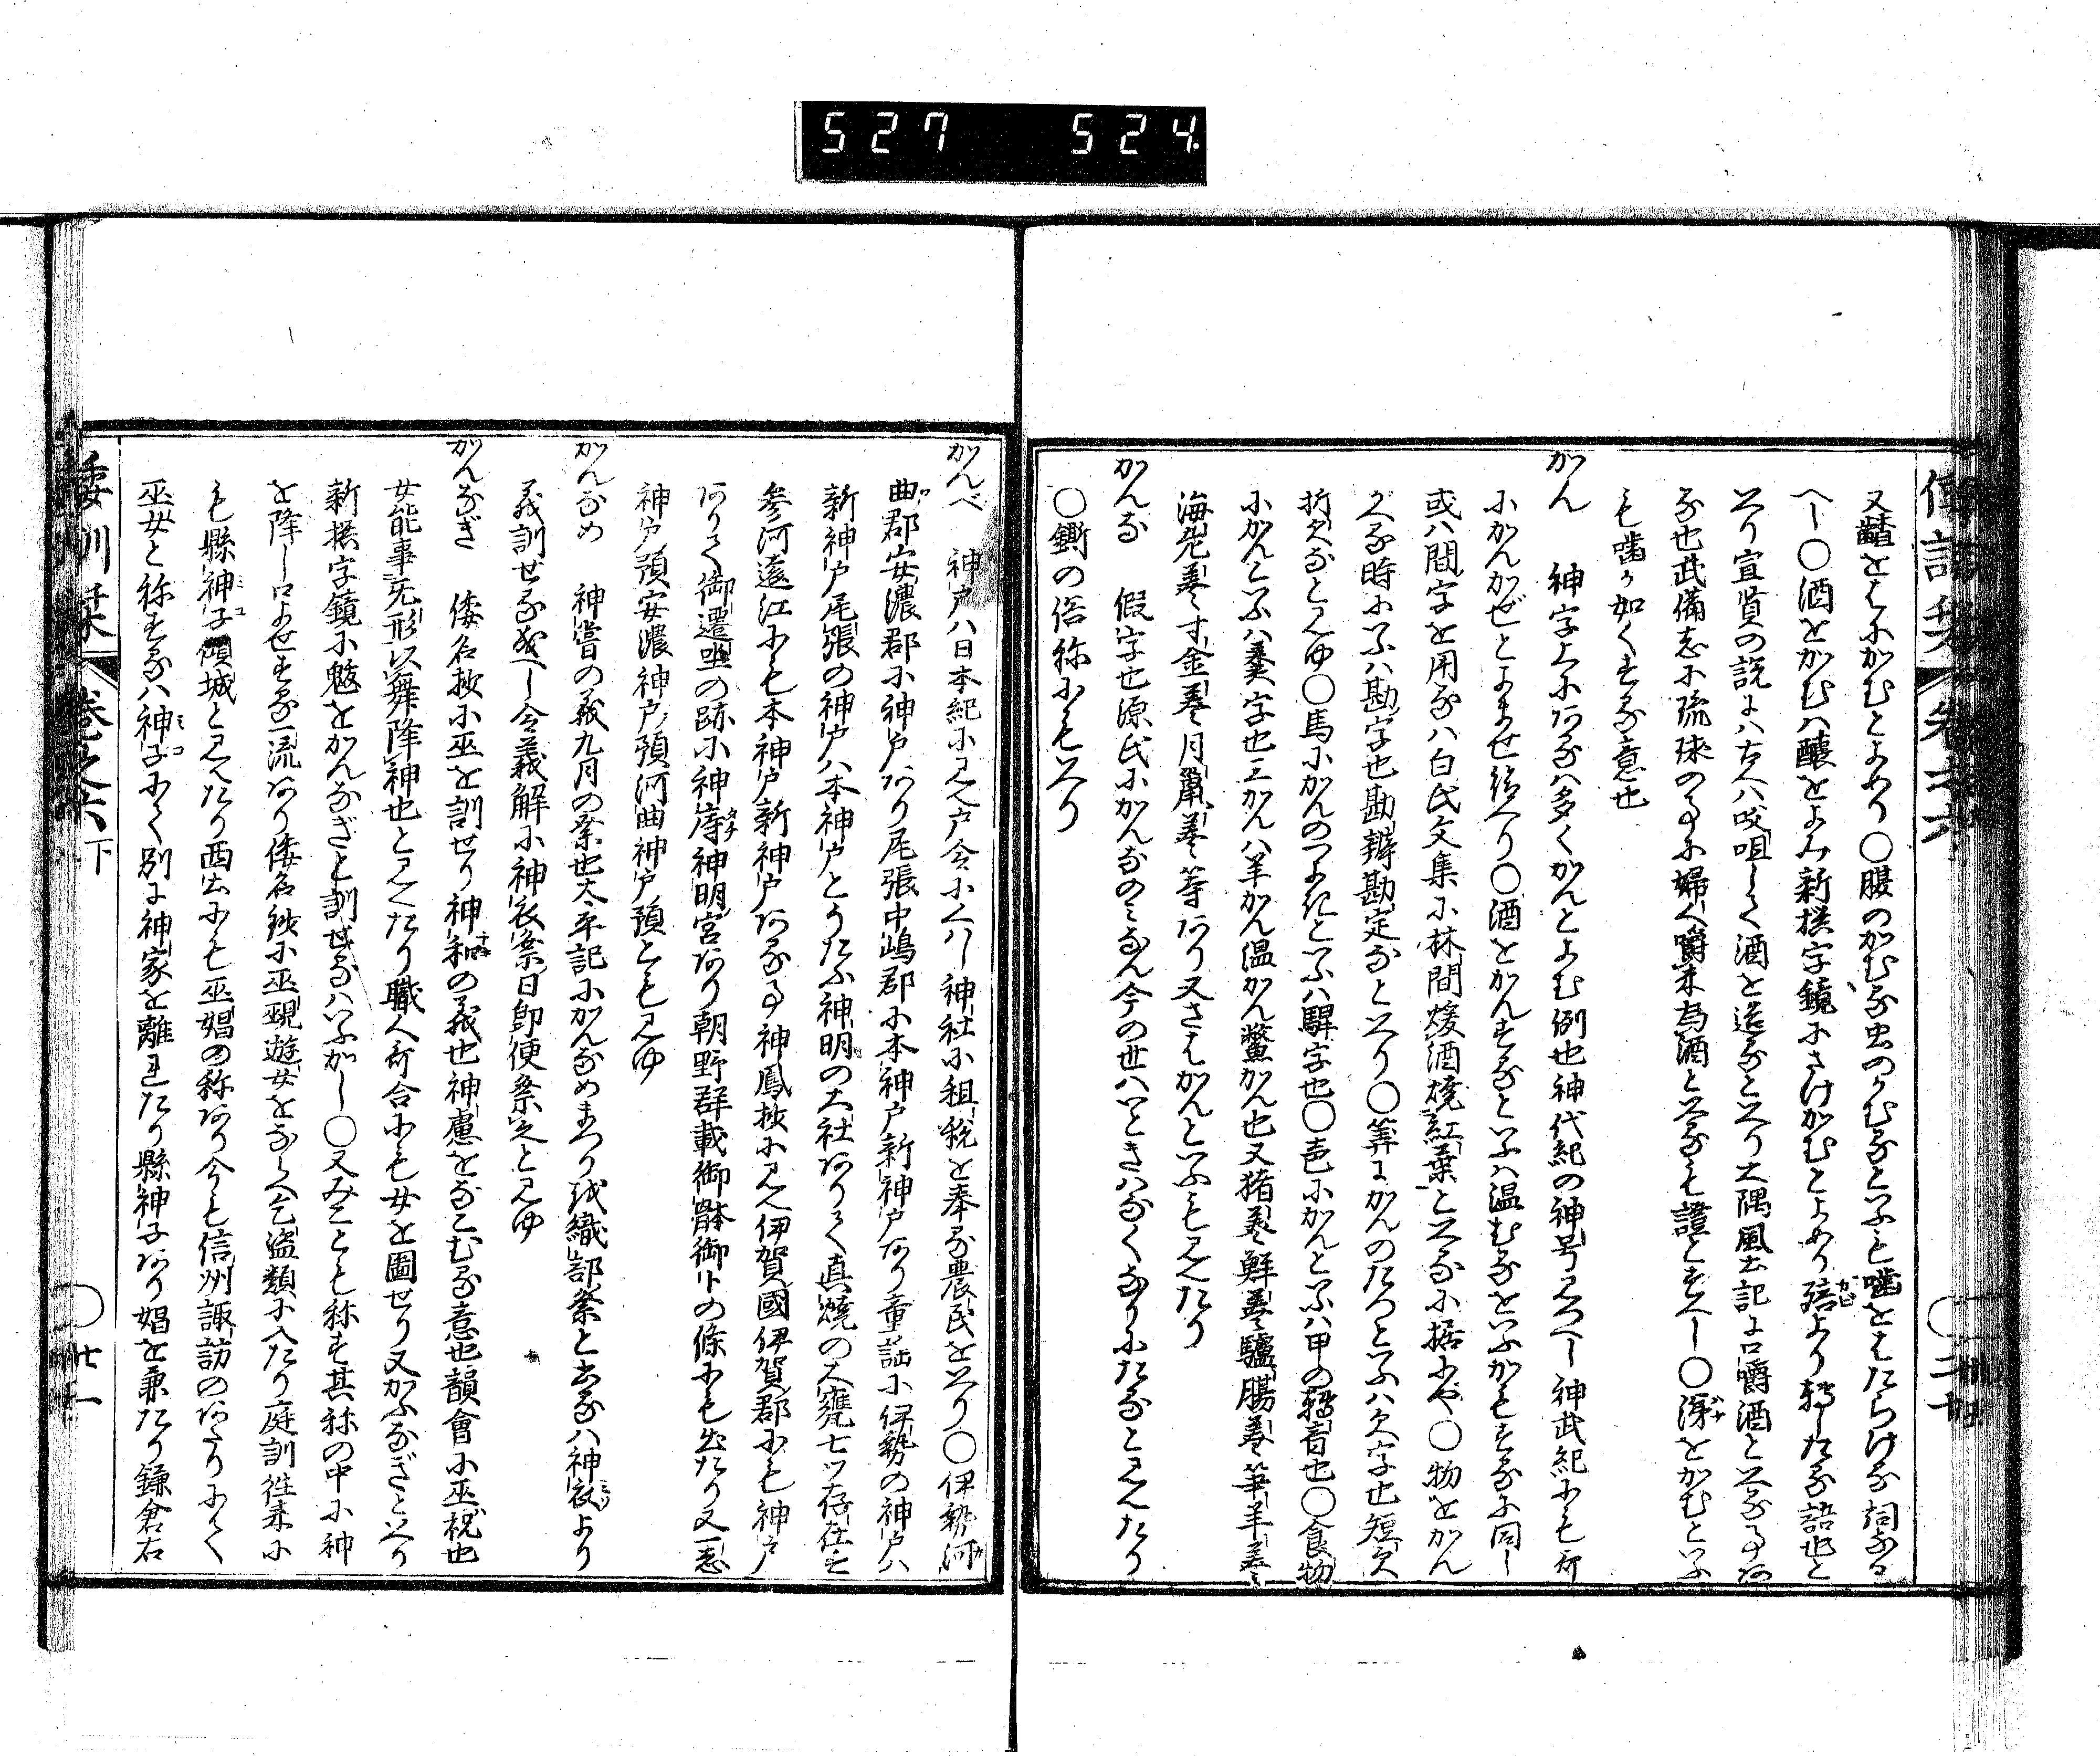 527 524.
又齰をもにかむとよめり○腹のかむる虫のかむるといふも噛をはたらける詞なる
へし○酒をかむハ釀をよみ新撰字鏡にさけかむとよめり醅より轉したる語也と
いへり宜賢の説には古人ハ咬咀して酒を造るといへり大隅風土記に口嚼酒といふる事あ
る也武備志に琉球の事に婦人嚼米為酒といふるも證とすへし○洟をかむといふ
も噛か如くする意也
かん 神字上にあるハ多くかんとよむ例也神代紀の神号見るへし神武紀にも所
にかんかぜとよませ給へり○酒をかんするといふハ温むるをいふかもするに同し
或ハ間字を用るハ白氏文集に林間煖酒燒紅葉といへるに据にや○物をかん
へる時にいふハ勘字也勘辨勘定なといへり○筭にかんのたつといふハ欠字也短欠
折欠なと見ゆ○馬にかんのつよきといふハ駻字也○声にかんといふハ甲の轉音也○食物
にかんといふハ羹字也三かんハ羊かん温かん鱉かん也又猪羹鮮羹驢腸羹笋羊羹
海老羹寸金羹月鼠羹等あり又さもかんといふも見えたり
かんな 假字也源氏にかんなのミなん今の世ハいときハなくなりにたると見えたり
○鐁の俗称にもいへり
かんべ 神戸ハ日本紀に見え戸令にくハし神社に租税を奉る農民をいへり○伊勢河
曲郡安濃郡に神戸あり尾張中嶋郡に本神戸新神戸あり童謡に伊勢の神戸ハ
新神戸尾張の神戸ハ本神戸とうたふ神明の大社ありて真燒の大甕七ツ存在す
参河遠江にも本神戸新神戸ある事神鳳抄に見え伊賀國伊賀郡にも神戸
ありて御遷坐の跡に神庤神明宮あり朝野群載御躰御卜の條にも出たり又一志
神戸預安濃神戸預河曲神戸預とも見ゆ
かんなめ 神嘗の義九月の祭也太平記にかんなめまつり或織部祭と書るハ神衣より
義訓せる成へし令義解に神衣祭日即便祭之と見ゆ
かんなぎ 倭名抄に巫を訓せり神和の義也神慮をなこむる意也韻會に巫祝也
女能事无形以舞降神也と見えたり職人哥合にも女を圖せり又かふなぎといへり
新撰字鏡に魃をかんなぎと訓せるハいふかし○又みことも称す其称の中に神
を降し口よせする一流あり倭名鈔に巫覡遊女をならへ乞盗類に入たり庭訓徃来に
も縣神子傾城と見えたり西土にも巫娼の称あり今も信州諏訪のあたりにて
巫女と称するハ神子にて別に神家を離れたり縣神子あり娼を兼たり鎌倉右
倭訓栞 巻之六 下 廿一